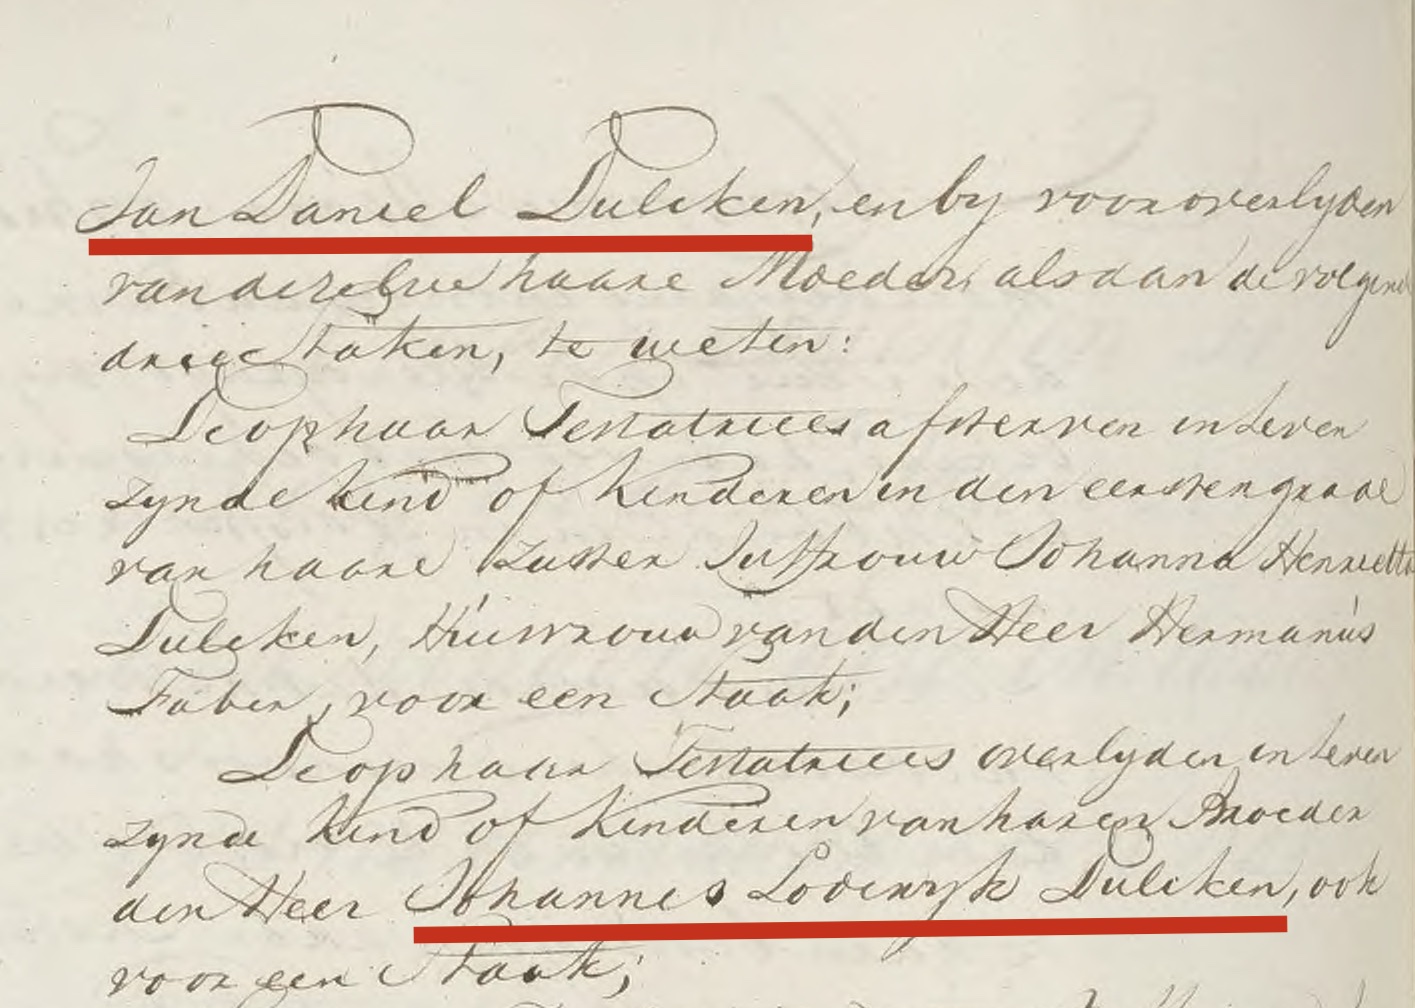 Jan Daniel Dulcken, en by vooroverlyden
van dezelve haare Moeder, alsdan de volgend
drie Staken, te weten:
De op haar Testatrices afsterven in leven
zynde kind of kinderen in den eersten graad
van haare Zuster Juffrouw Johanna Henrietta
Dulcken, Huisvrouw van den Heer Hermanus
Faber, voor een Staak;
De op haar Testatrices overlyden in leven
zynde kind of kinderen van haren Broeder
den Heer Johannes Lodewyk Dulcken, ook
voor een Staak;